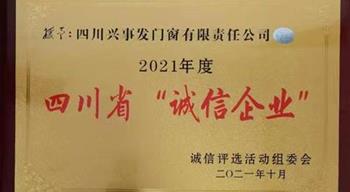 授予：四川兴事发门窗有限责任公司
2021年度
四川省“诚信企业”
诚信评选活动组委会
二〇二一年十月